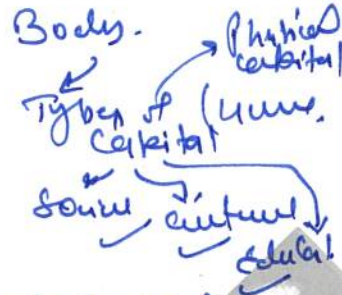 Body.
Physical
capital
Types of
capital
(Hum.
Social
cultural
educat